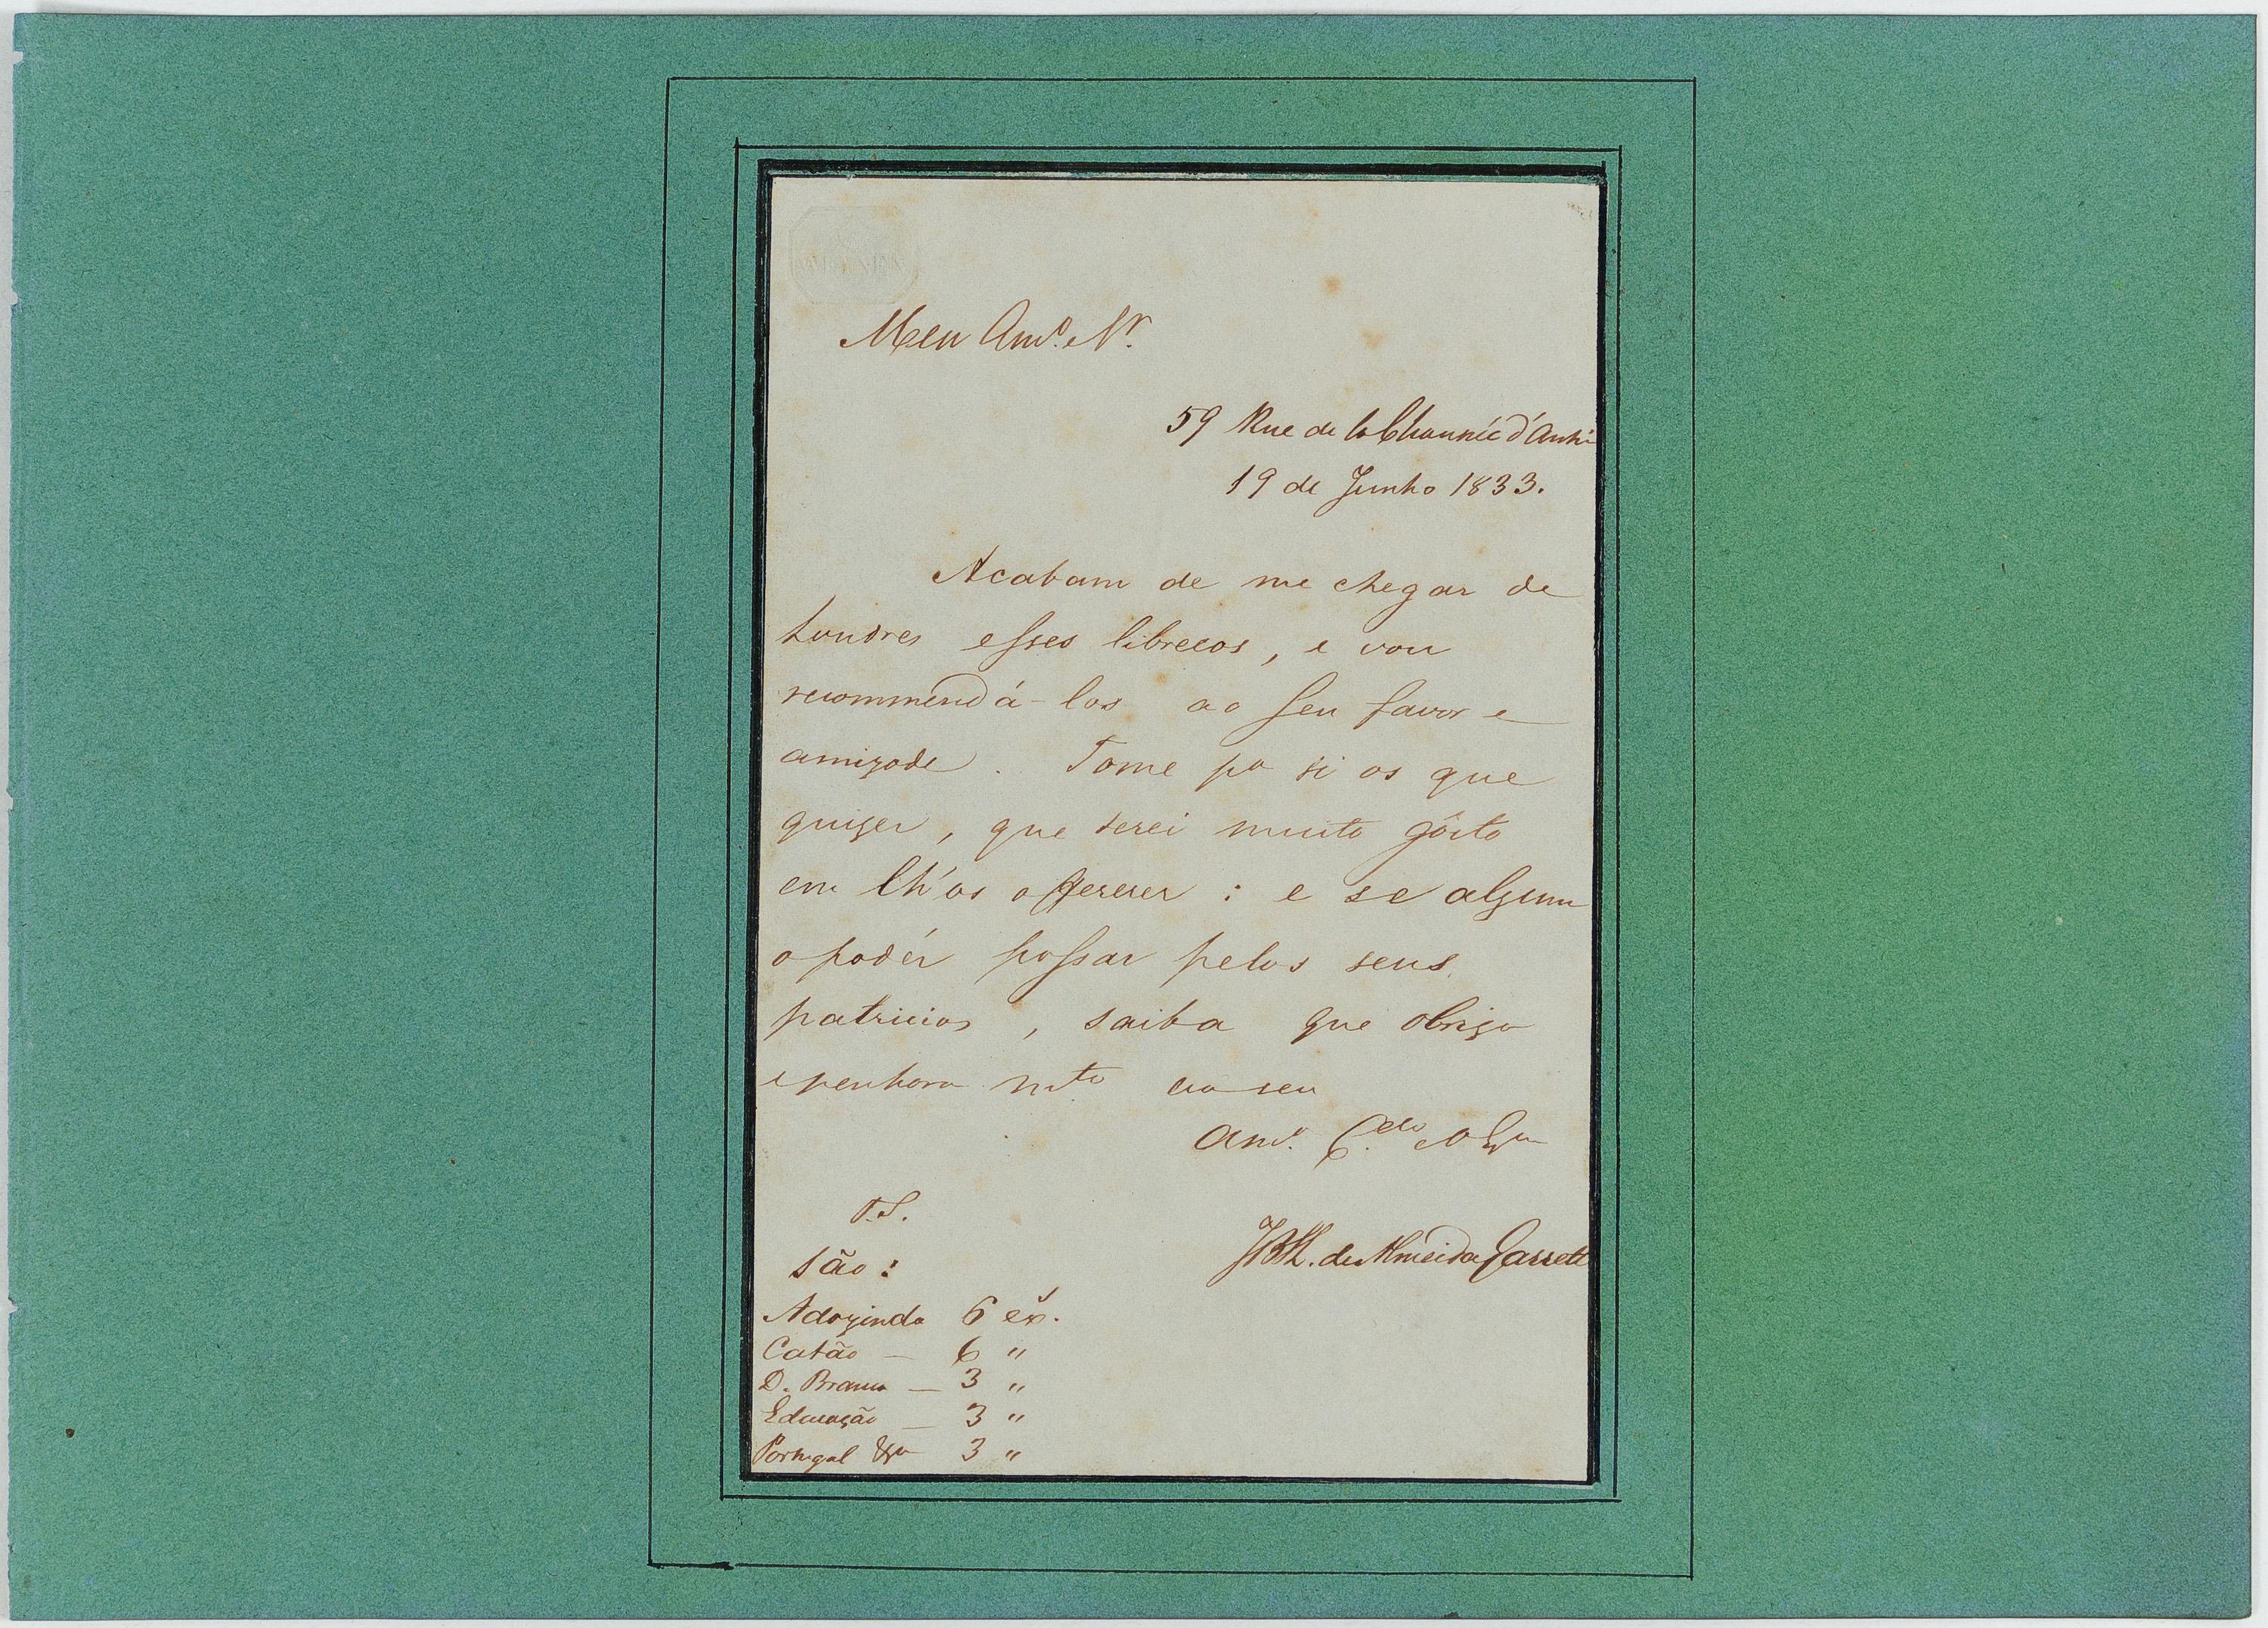 Meu Am.º e Sr.
59 Rue de la Chaussée d'Anti
19 de Junho 1833.
Acabam de me chegar de
Londres esses librecos, e vou
recommendá-los ao seu favor e
amizade. Tome pa si os que
quizer, que terei muito gôsto
em lh'os offerecer : e se algum
o podér passar pelos seus
patricios, saiba que obriga
e penhora m.to ao seu
Am.º C.do e Obr
P.S.
J B L. de Almeida Garrett
São:
Adozinda 6 ex.
Catão — 6 "
D. Branca — 3 "
Educação — 3 "
Portugal &a 3 "